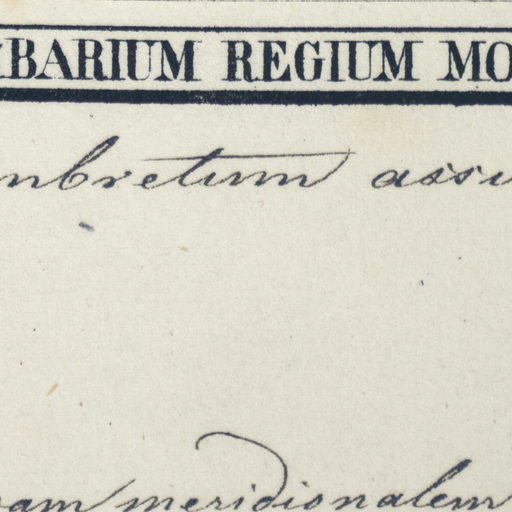 BARIUM REGIUM MO
mbretum assu
am meridionalem